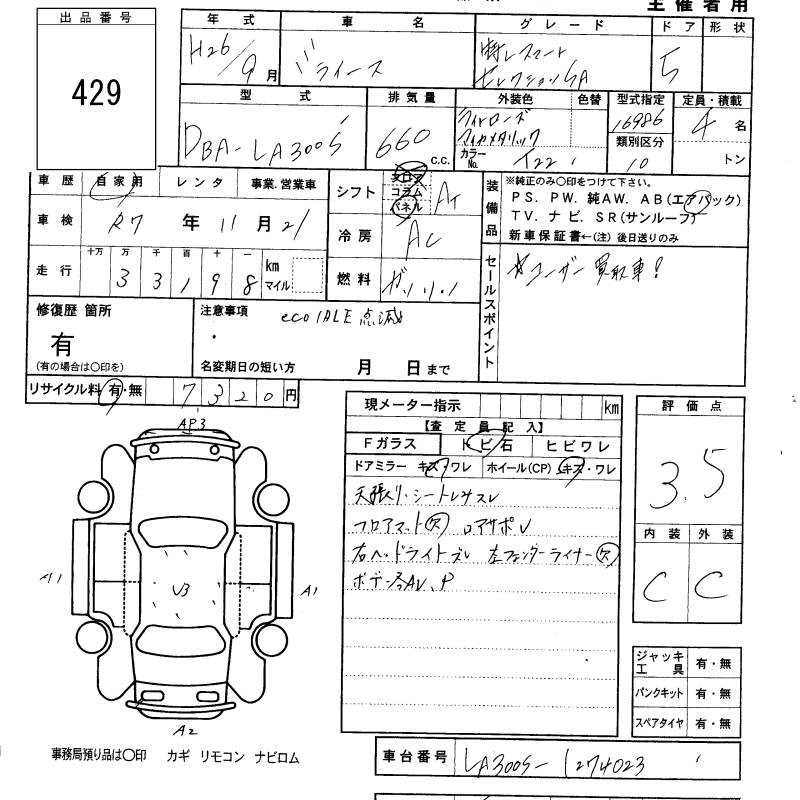 主催者用
出品番号
429
年式 車名 グレード ドア 形状
H26/9月 ミライース 特レスマートセレクションSA 5
型式 排気量 外装色 色替 型式指定 定員・積載
DBA-LA300S 660 C.C. ライトローズマイカメタリック 16986 4名
カラーNo. T22 類別区分 10 トン
車歴 自家用 レンタ 事業.営業車
シフト フロア コラム パネル AT
装備品 ※純正のみ○印をつけて下さい。
PS. PW. 純AW. AB(エアバック)
TV. ナビ. SR(サンルーフ)
新車保証書←(注)後日送りのみ
車検 R7年11月21
冷房 AC
走行 十万 万 千 百 十 一 km マイル
33198
燃料 ガソリン
セールスポイント
☆ユーザー買取車!
修復歴 箇所
有
(有の場合は○印を)
注意事項 eco IDLE 点滅
名変期日の短い方 月 日まで
リサイクル料 有・無 7320円
現メーター指示 km
【査定員記入】
Fガラス トビ石 ヒビワレ
ドアミラー キズ・ワレ ホイール(CP) キズ・ワレ
天張り・シートレサスレ
フロアマット欠 ロアサポU
右ヘッドライトズレ 左フェンダーライナー欠
ボデー各AU、P
評価点
3.5
内装 外装
C C
AP3
A1
U3
A1
A2
ジャッキ工具 有・無
パンクキット 有・無
スペアタイヤ 有・無
事務局預り品は○印 カギ リモコン ナビロム
車台番号 LA300S-1274023